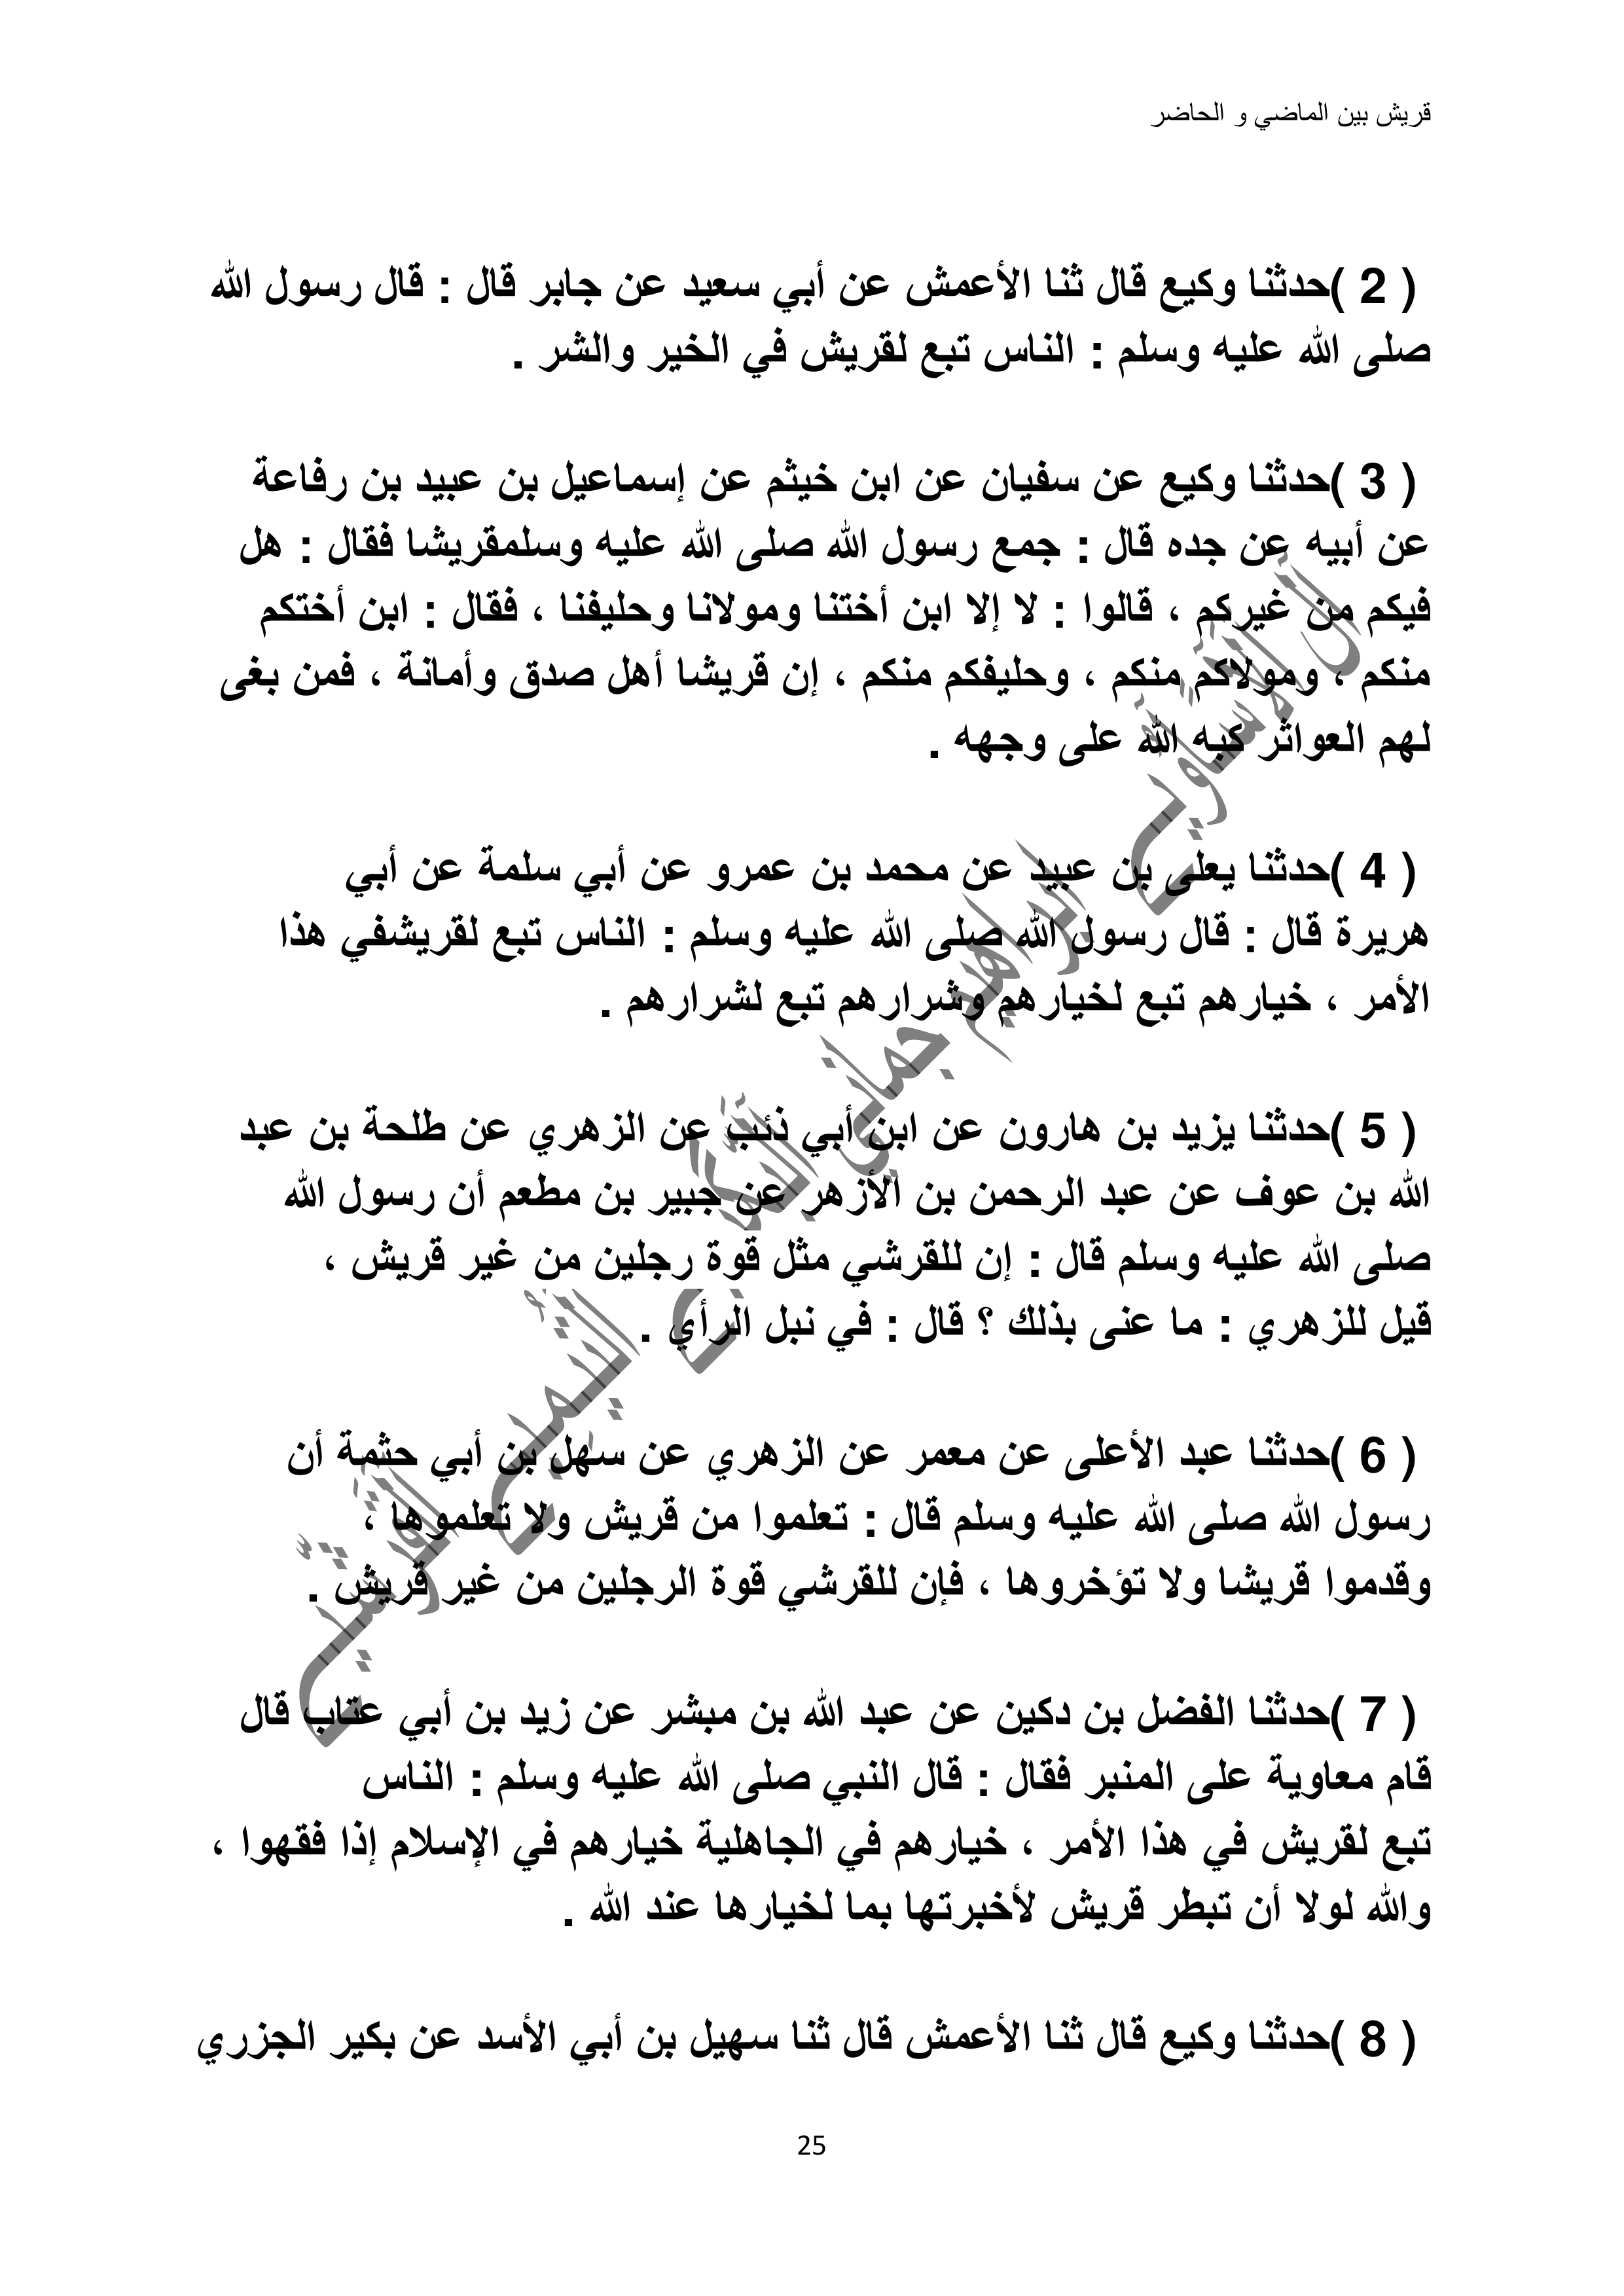 قريش بين الماضي و الحاضر
( 2 )حدثنا وكيع قال ثنا الأعمش عن أبي سعيد عن جابر قال : قال رسول الله
صلى الله عليه وسلم : الناس تبع لقريش في الخير والشر .
( 3 )حدثنا وكيع عن سفيان عن ابن خيثم عن إسماعيل بن عبيد بن رفاعة
عن أبيه عن جده قال : جمع رسول الله صلى الله عليه وسلمقريشا فقال : هل
فيكم من غيركم ، قالوا : لا إلا ابن أختنا ومولانا وحليفنا ، فقال : ابن أختكم
منكم ، ومولاكم منكم ، وحليفكم منكم ، إن قريشا أهل صدق وأمانة ، فمن بغى
لهم العواثر كبه الله على وجهه .
( 4 )حدثنا يعلى بن عبيد عن محمد بن عمرو عن أبي سلمة عن أبي
هريرة قال : قال رسول الله صلى الله عليه وسلم : الناس تبع لقريشفي هذا
الأمر ، خيارهم تبع لخيارهم وشرارهم تبع لشرارهم .
( 5 )حدثنا يزيد بن هارون عن ابن أبي ذئب عن الزهري عن طلحة بن عبد
الله بن عوف عن عبد الرحمن بن الأزهر عن جبير بن مطعم أن رسول الله
صلى الله عليه وسلم قال : إن للقرشي مثل قوة رجلين من غير قريش ،
قيل للزهري : ما عنى بذلك ؟ قال : في نبل الرأي .
( 6 )حدثنا عبد الأعلى عن معمر عن الزهري عن سهل بن أبي حثمة أن
رسول الله صلى الله عليه وسلم قال : تعلموا من قريش ولا تعلموها ،
وقدموا قريشا ولا تؤخروها ، فإن للقرشي قوة الرجلين من غير قريش .
( 7 )حدثنا الفضل بن دكين عن عبد الله بن مبشر عن زيد بن أبي عتاب قال
قام معاوية على المنبر فقال : قال النبي صلى الله عليه وسلم : الناس
تبع لقريش في هذا الأمر ، خيارهم في الجاهلية خيارهم في الإسلام إذا فقهوا ،
والله لولا أن تبطر قريش لأخبرتها بما لخيارها عند الله .
( 8 )حدثنا وكيع قال ثنا الأعمش قال ثنا سهيل بن أبي الأسد عن بكير الجزري
25